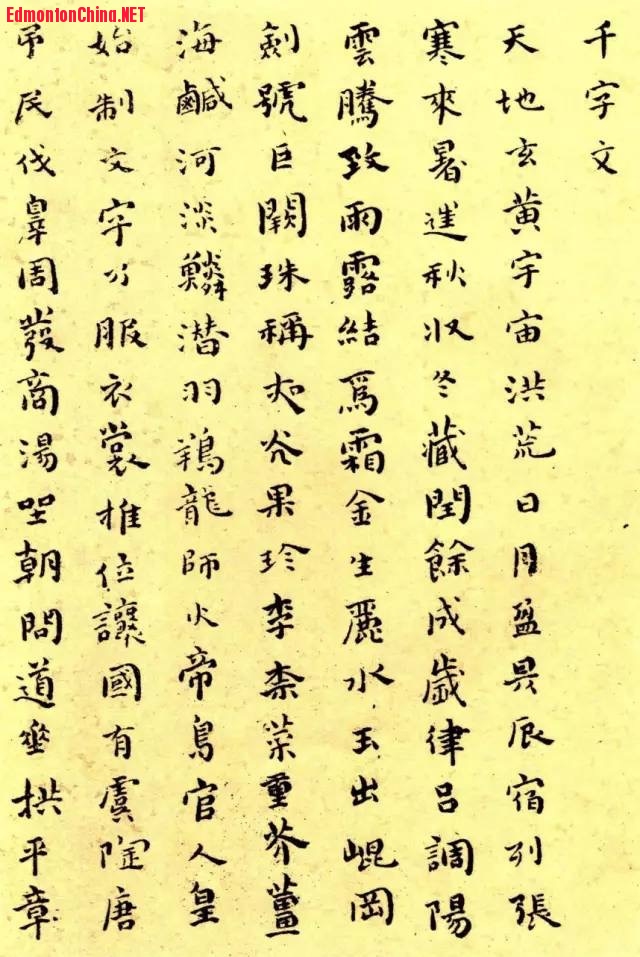 EdmontonChina.NET
千字文
天地玄黃宇宙洪荒日月盈昃辰宿列張
寒來暑往秋收冬藏閏餘成歲律呂調陽
雲騰致雨露結爲霜金生麗水玉出崐岡
劍號巨闕珠稱夜光果珍李柰菜重芥薑
海鹹河淡鱗潛羽翔龍師火帝鳥官人皇
始制文字乃服衣裳推位讓國有虞陶唐
弔民伐辠周發商湯坐朝問道垂拱平章